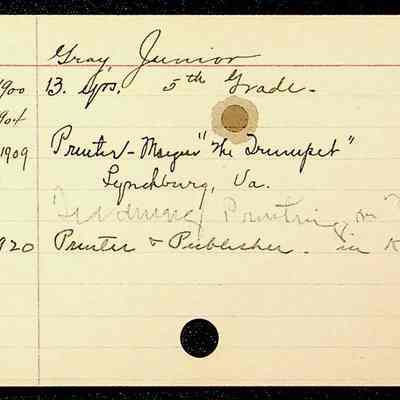 Gray, Junior
1900 13. yrs. 5th Grade.
904
1909 Printer - Mangr "The Trumpet"
Lynchburg, Va.
Printing,
920 Printer & Publisher. in